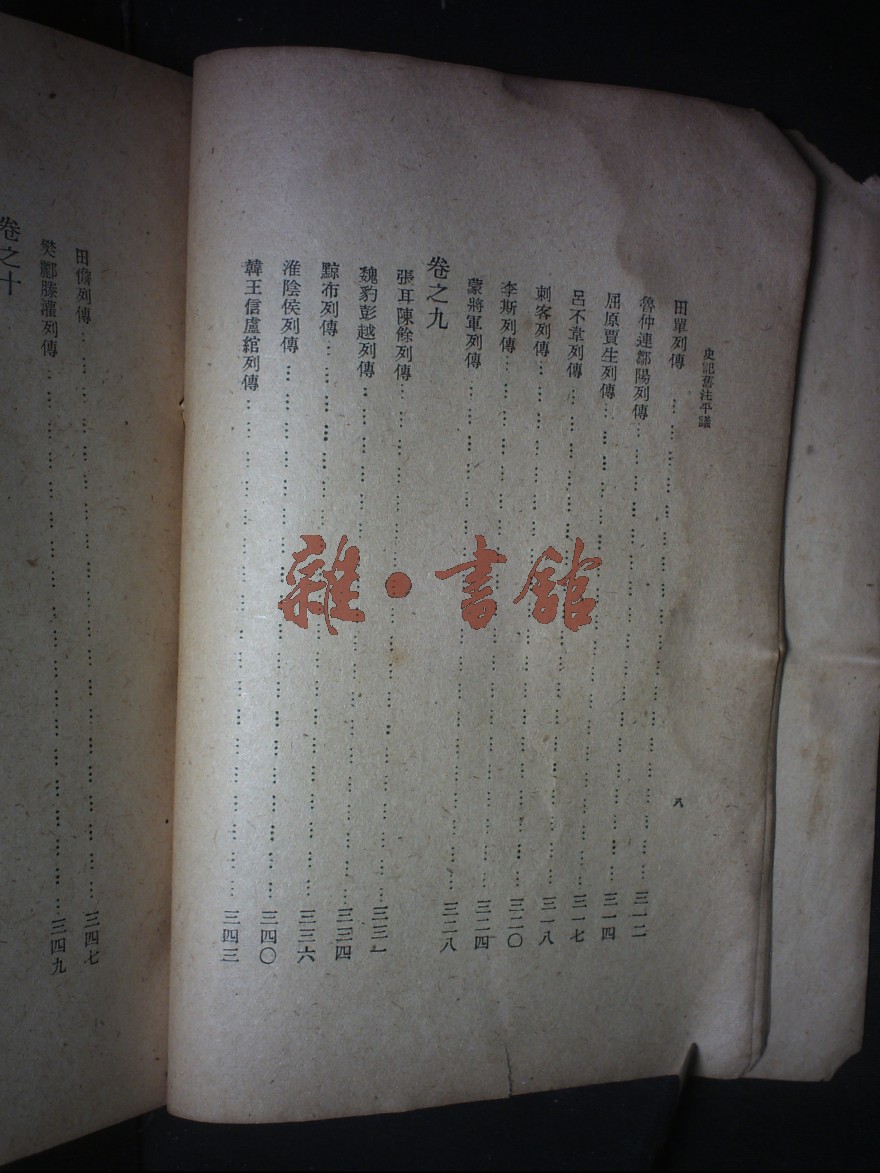 史記舊注平議
八
田單列傳………………三一二
魯仲連鄒陽列傳………………三一四
屈原賈生列傳………………三一七
呂不韋列傳………………三一八
刺客列傳………………三二〇
李斯列傳………………三二四
蒙將軍列傳………………三二八
卷之九
張耳陳餘列傳………………三三一
魏豹彭越列傳………………三三四
黥布列傳………………三三六
淮陰侯列傳………………三四〇
韓王信盧綰列傳………………三四三
田儋列傳………………三四七
樊酈滕灌列傳………………三四九
卷之十
雜·書館